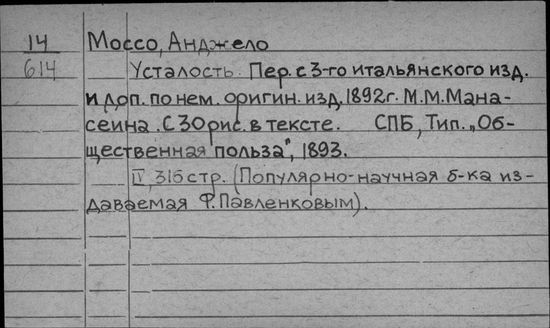 14 Моссо, Анджело
614 Усталость. Пер. с 3-го итальянского изд.
и доп. по нем. оригин. изд, 1892г. М.М. Мана-
сеина. С 30 рис. в тексте. СПБ, Тип. „Об-
щественная польза", 1893.
IV, 316 стр. (Популярно-научная б-ка из-
даваемая Ф. Павленковым).